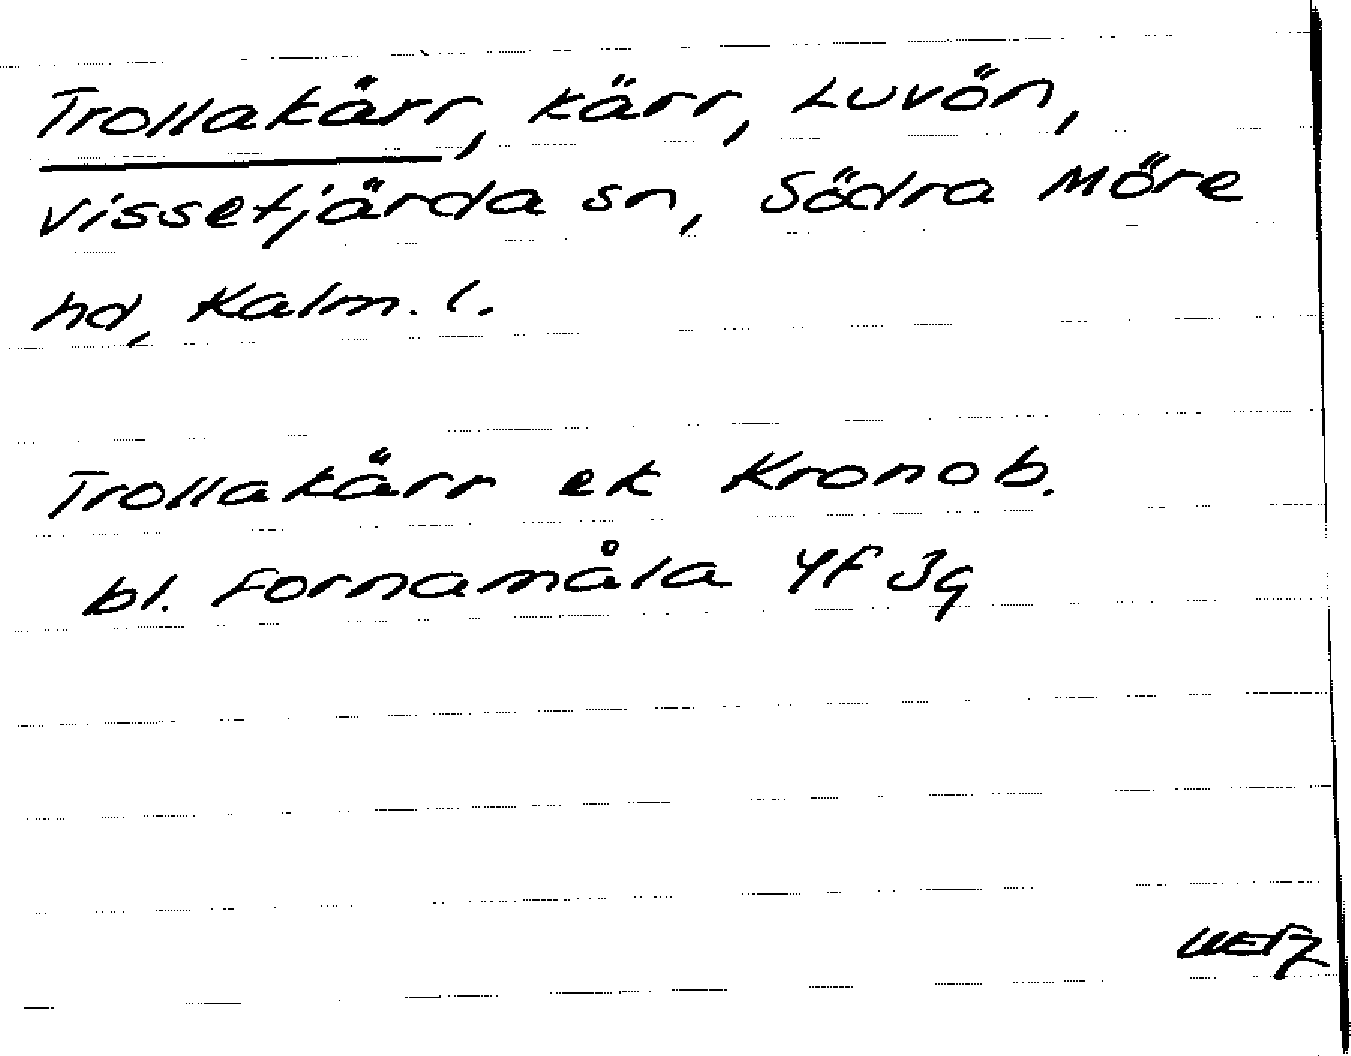 Trollakärr, kärr, Luvön,
Vissefjärda sn, Södra Möre
hd, Kalm. l.
Trollakärr ek Kronob.
bl. Fornamåla 4F 3g